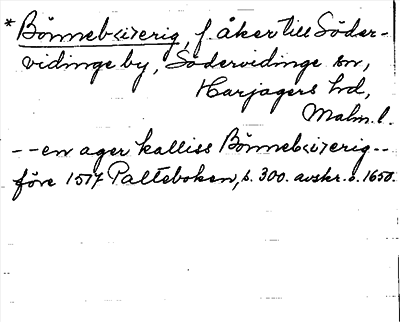 *Bönneb<i>erig, f. åker till Söder-
vidinge by, Södervidinge sn,
Harjagers hd,
Malm. l.
--en ager kalliss Bönneb<i>erig--
före 1517 Palteboken, s. 300. avskr. o. 1650.